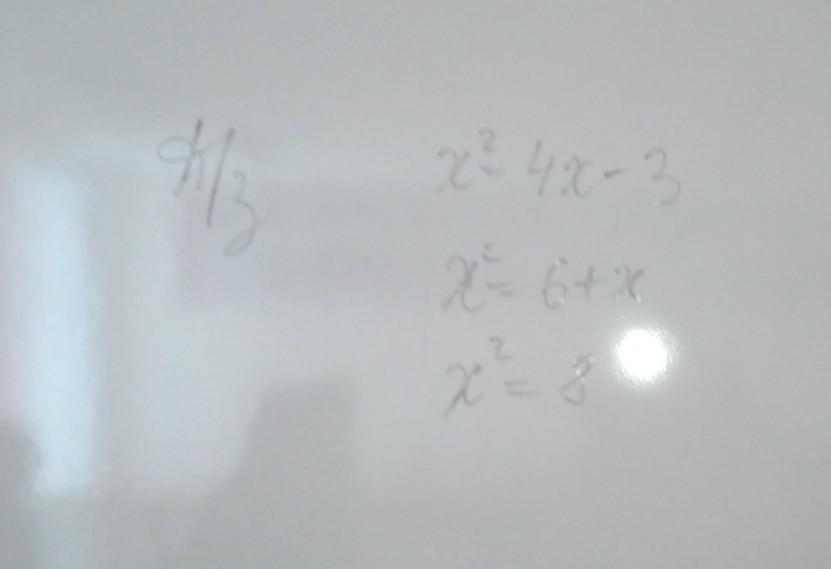 д/з x² = 4x - 3
x² = 6 + x
x² = 8